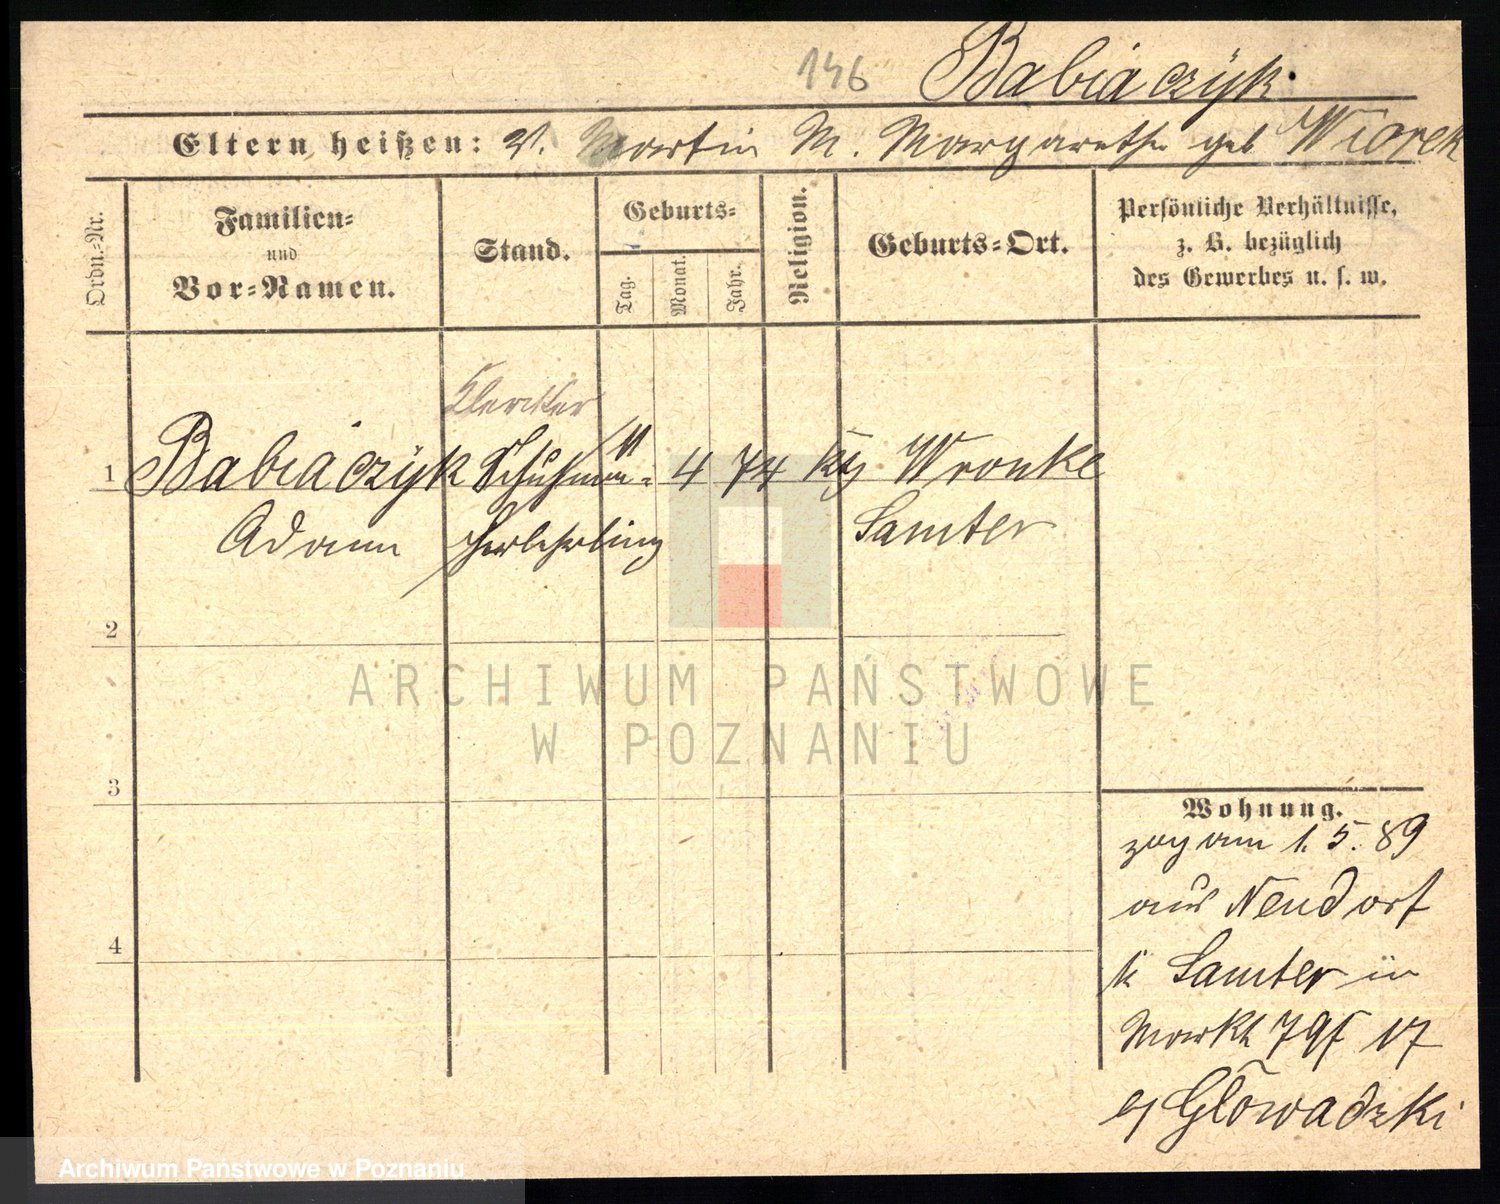 146 Babiaczÿk.
Eltern heißen: V. Martin M. Margarethe geb Wiorek
Ordn.-Nr.
Familien-
und
Vor-Namen.
Stand.
Geburts-
Tag.
Monat.
Jahr.
Religion.
Geburts-Ort.
Persönliche Verhältnisse,
z. B. bezüglich
des Gewerbes u. s. w.
1 Babiaczÿk Schuhma- 4 74 Wronke
Adam cherlehrling Samter
2
3
4
Wohnung.
zog am 1. 5. 89
aus Neudorf
K Samter in
Markt 79 17
Głowadzki
ARCHIWUM PAŃSTWOWE
W POZNANIU
Archiwum Państwowe w Poznaniu